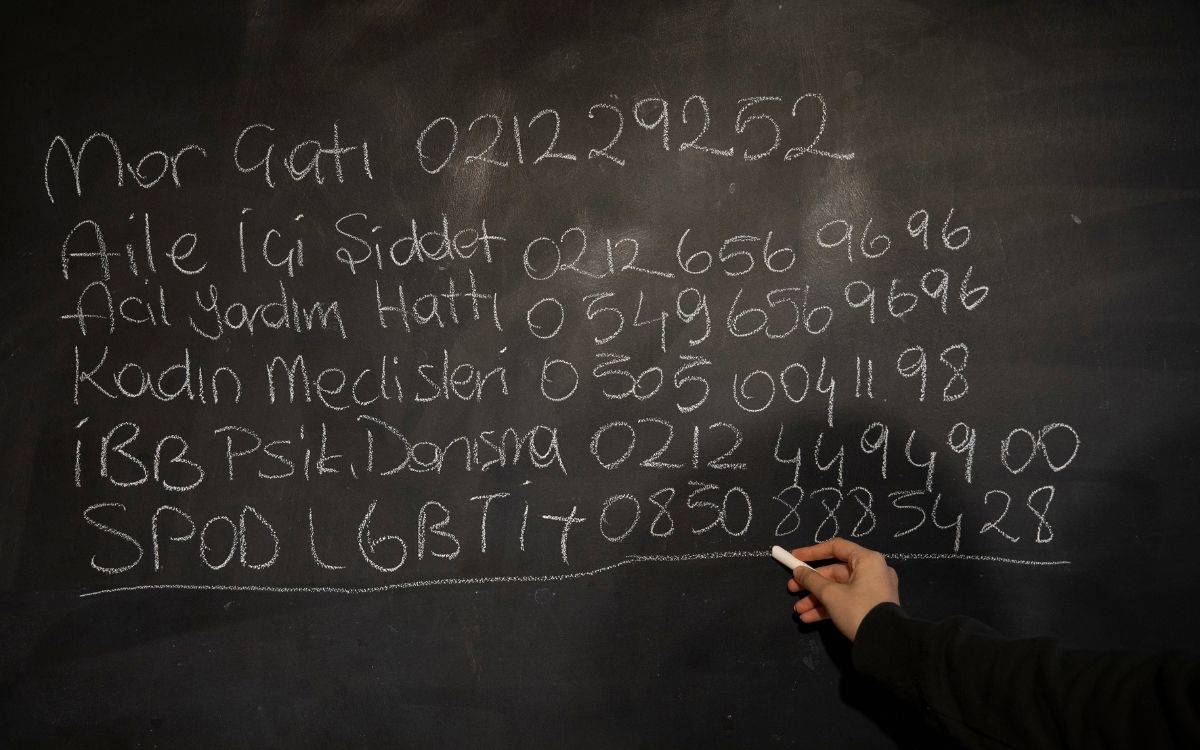 Mor Çatı 0212 29252
Aile İçi Şiddet 0212 656 96 96
Acil Yardım Hattı 0 549 656 96 96
Kadın Meclisleri 0 505 004 11 98
İBB Psik. Danışma 0212 449 49 00
SPOD LGBTİ+ 0850 888 54 28